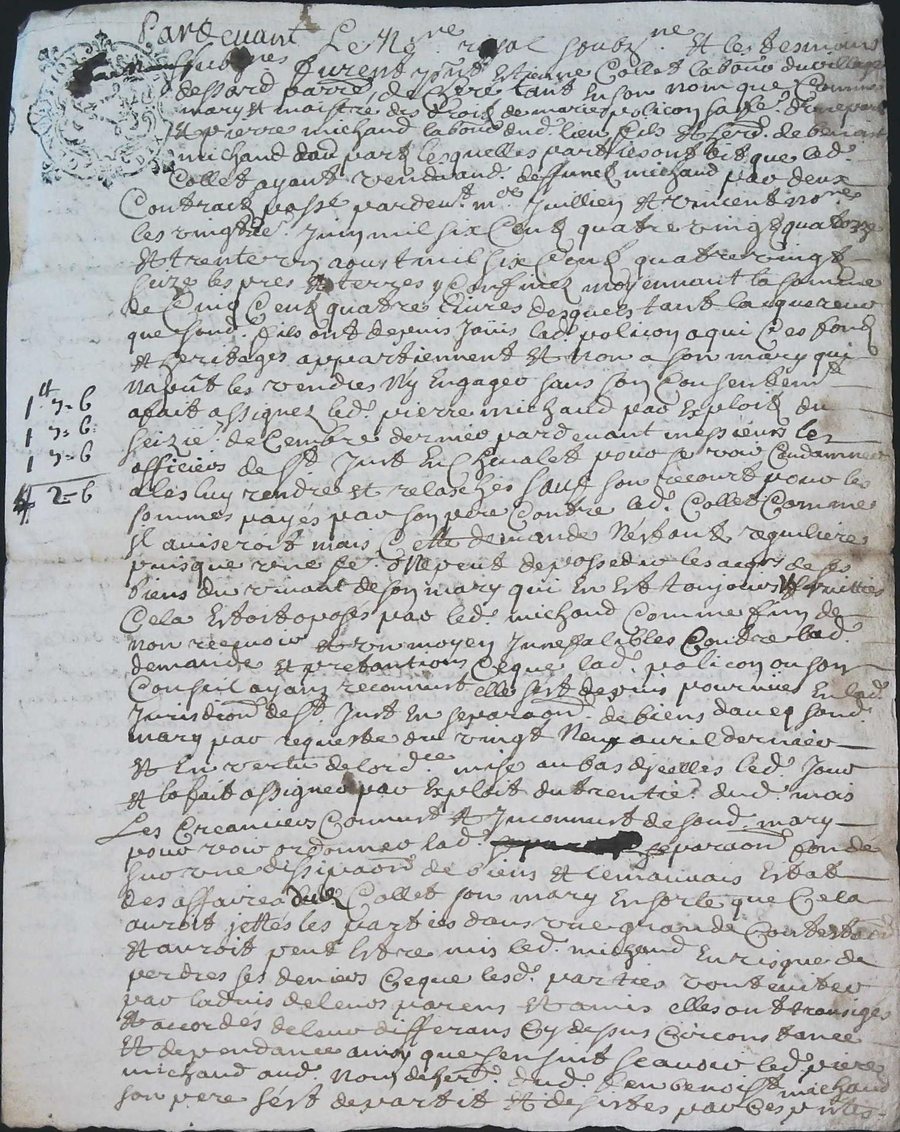 Pardevant Le No.re royal soubz.ne Et les tesmoins
furent p.nt Estienne Collet labou.r du village
dessard parr.e de Cezre tant En son nom que Comme
mary Et maistre des droitz de marie policon sa fe. d'une part
Et pierre michaud labou.r dud. lieu fils Et herd. de benoist
michaud dau.e part lesquelles parties ont dit que led.
Collet ayant vendu aud. deffunct michaud par deux
Contractz passé pardeu.t m.e Juillien Et vincent no.res
les vingt Juin mil six Centz quatre vingt quatorze
Et trente un aoust mil six Centz quatre vingt
seize les pres Et terres y Confinez moyennant la somme
de Cinq Centz quatre Livres desquels tant lacquereur
que sond. fils ont depuis Jouis lad. policon a qui Ces fondz
Et heritages appartiennent Et Non a son mary qui
Na put les vendres Ny Engager sans son Consentem.t
a fait assignez led. pierre michaud par Exploit du
seizie. decembre dernier pardevant messieurs les
officiers de S.t Just En Chevalet pour se voir Condamner
a les luy rendre Et relaschés sauf son recourt pour les
sommes payés par son pere Contre led. Collet Comme
Il aviseroit mais Cette demande N'estant reguliere
puisque une fe. Ne peut deposseder les acq.rs de ses
biens du vivant de son mary qui En Est toujours
Cela Estoit oposés par led. michaud Comme fin de
non recevoir Et un moyen Innefalibles Contre lad.
demande Et pretantions Ceque lad. policon ou son
Conseil ayant reconnut elle sest depuis pourvue En lad.
Jurisdiōn de S.t Just En separaōn de biens davecq sond.
mary par requeste du vingt Neuf avril dernier
Et En vertu de lord.ce mise au bas dycelles led. Jour
Et la fait assigner par Exploit du trentie. dud. mois
Les Creanciers Connust Et Inconnust de sond. mary
pour voir ordonner lad. separaōn fondé
sur une dissipaōn de biens Et le mauvais Estat
des affaires dud. Collet son mary En sorte que Cela
auroit jettés les parties dans une grande Contestaōn
Et auroit peut Estre mis led. michaud En risque de
perdres ses deniers Ceque lesd. parties vont eviter
par ladvis de leurs parens Et amis elles ont transigés
Et accordés de leur differans Cy dessus Circonstance
Et dependance ainsy que sen suit scavoir led. pierre
michaud aud. Nom de her. dud. feu benoist michaud
son pere sest departit Et desistes par Ces p.ntes
1.tt 7=6
1 7=6
1 7=6
4 2=6